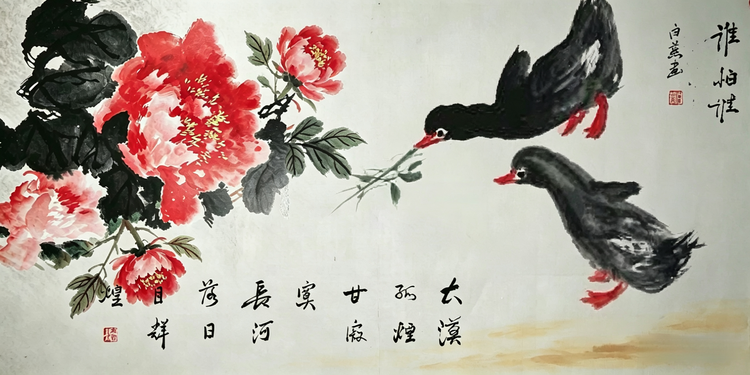 誰怕誰
白燕畫
大漠
孤煙
甘寂
寞
長河
落日
自輝
煌